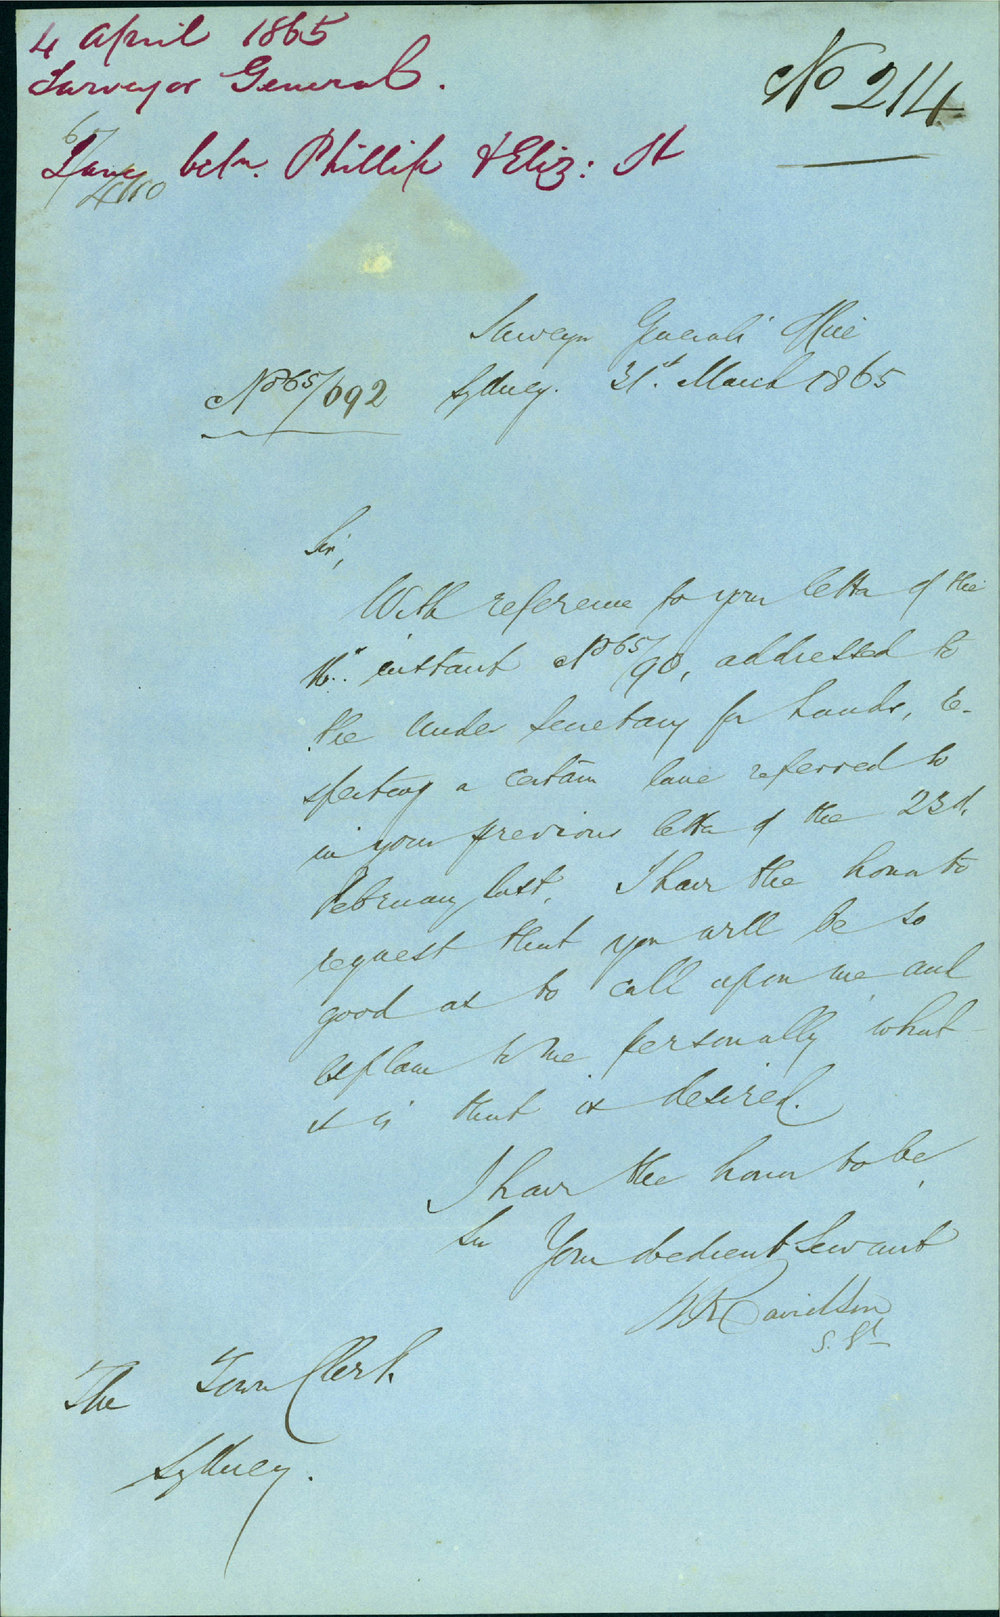 4 April 1865
Surveyor General.
No 214
Lane betn. Phillip & Eliz: St
Surveyor General's Office
No 65/092 Sydney. 31st. March 1865
Sir,
With reference to your letter of the
instant No 65/90, addressed to
the Under Secretary for Lands, re-
specting a certain lane referred to
in your previous letter of the 23d.
February last, I have the honor to
request that you will be so
good as to call upon me and
explain to me personally what
it is that is desired.
I have the honor to be,
Sir Your obedient Servant
WR Davidson
S. Gl
The Town Clerk
Sydney.